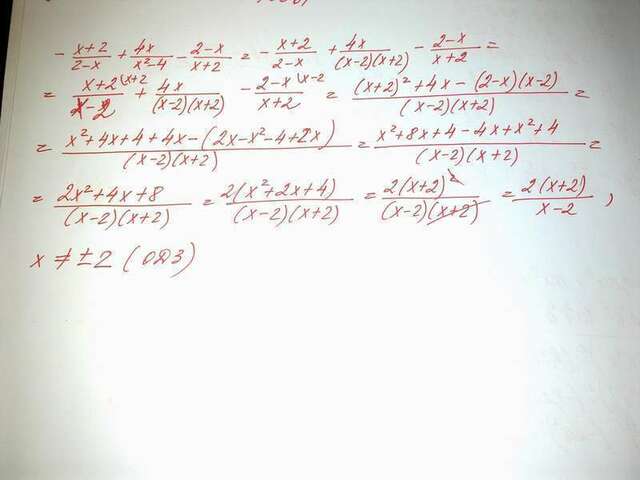 - \frac{x+2}{2-x} + \frac{4x}{x^2-4} - \frac{2-x}{x+2} = - \frac{x+2}{2-x} + \frac{4x}{(x-2)(x+2)} - \frac{2-x}{x+2} =
= \frac{x+2 \backslash x+2}{x-2} + \frac{4x}{(x-2)(x+2)} - \frac{2-x \backslash x-2}{x+2} = \frac{(x+2)^2+4x-(2-x)(x-2)}{(x-2)(x+2)} =
= \frac{x^2+4x+4+4x-(2x-x^2-4+2x)}{(x-2)(x+2)} = \frac{x^2+8x+4-4x+x^2+4}{(x-2)(x+2)} =
= \frac{2x^2+4x+8}{(x-2)(x+2)} = \frac{2(x^2+2x+4)}{(x-2)(x+2)} = \frac{2(x+2)^2}{(x-2)(x+2)} = \frac{2(x+2)}{x-2} ,
x ≠ ±2 (ОДЗ)